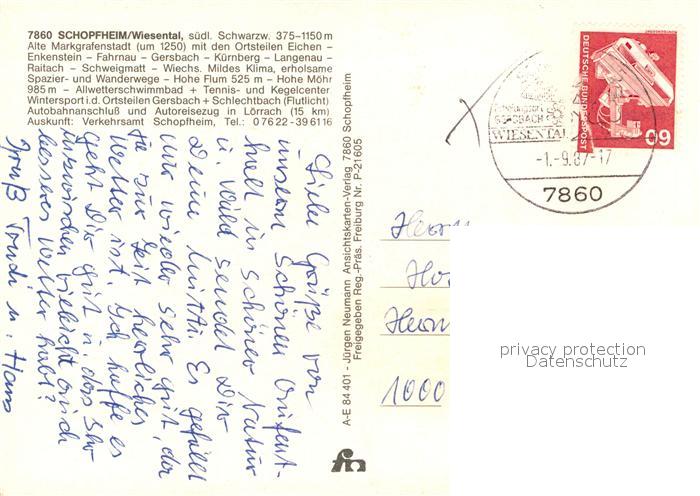 7860 SCHOPFHEIM/Wiesental, südl. Schwarzw. 375–1150 m
Alte Markgrafenstadt (um 1250) mit den Ortsteilen Eichen –
Enkenstein – Fahrnau – Gersbach – Kürnberg – Langenau –
Raitach – Schweigmatt – Wiechs. Mildes Klima, erholsame
Spazier- und Wanderwege – Hohe Flum 525 m – Hohe Möhr
985 m – Allwetterschwimmbad + Tennis- und Kegelcenter
Wintersport i. d. Ortsteilen Gersbach + Schlechtbach (Flutlicht)
Autobahnanschluß und Autoreisezug in Lörrach (15 km)
Auskunft: Verkehrsamt Schopfheim, Tel.: 0 76 22 - 39 61 16
Liebe Grüße von
unserem schönen Aufent-
halt in schöner Natur
u. Wald sendet Dir
Deine Mutti. Es gefällt
mir wieder sehr gut, da
ja zur Zeit herrliches
Wetter ist. Ich hoffe es
geht Dir gut u. das Ihr
inzwischen vielleicht auch
besseres Wetter habt?
Gruß Trudi u. Hans
A-E 84 401 - Jürgen Neumann Ansichtskarten-Verlag 7860 Schopfheim
Freigegeben Reg.-Präs. Freiburg Nr. P-21605
DEUTSCHE BUNDESPOST
60
GERSBACH
WIESENTAL
-1.-9.87-17
7860
Herrn
1000
privacy protection
Datenschutz